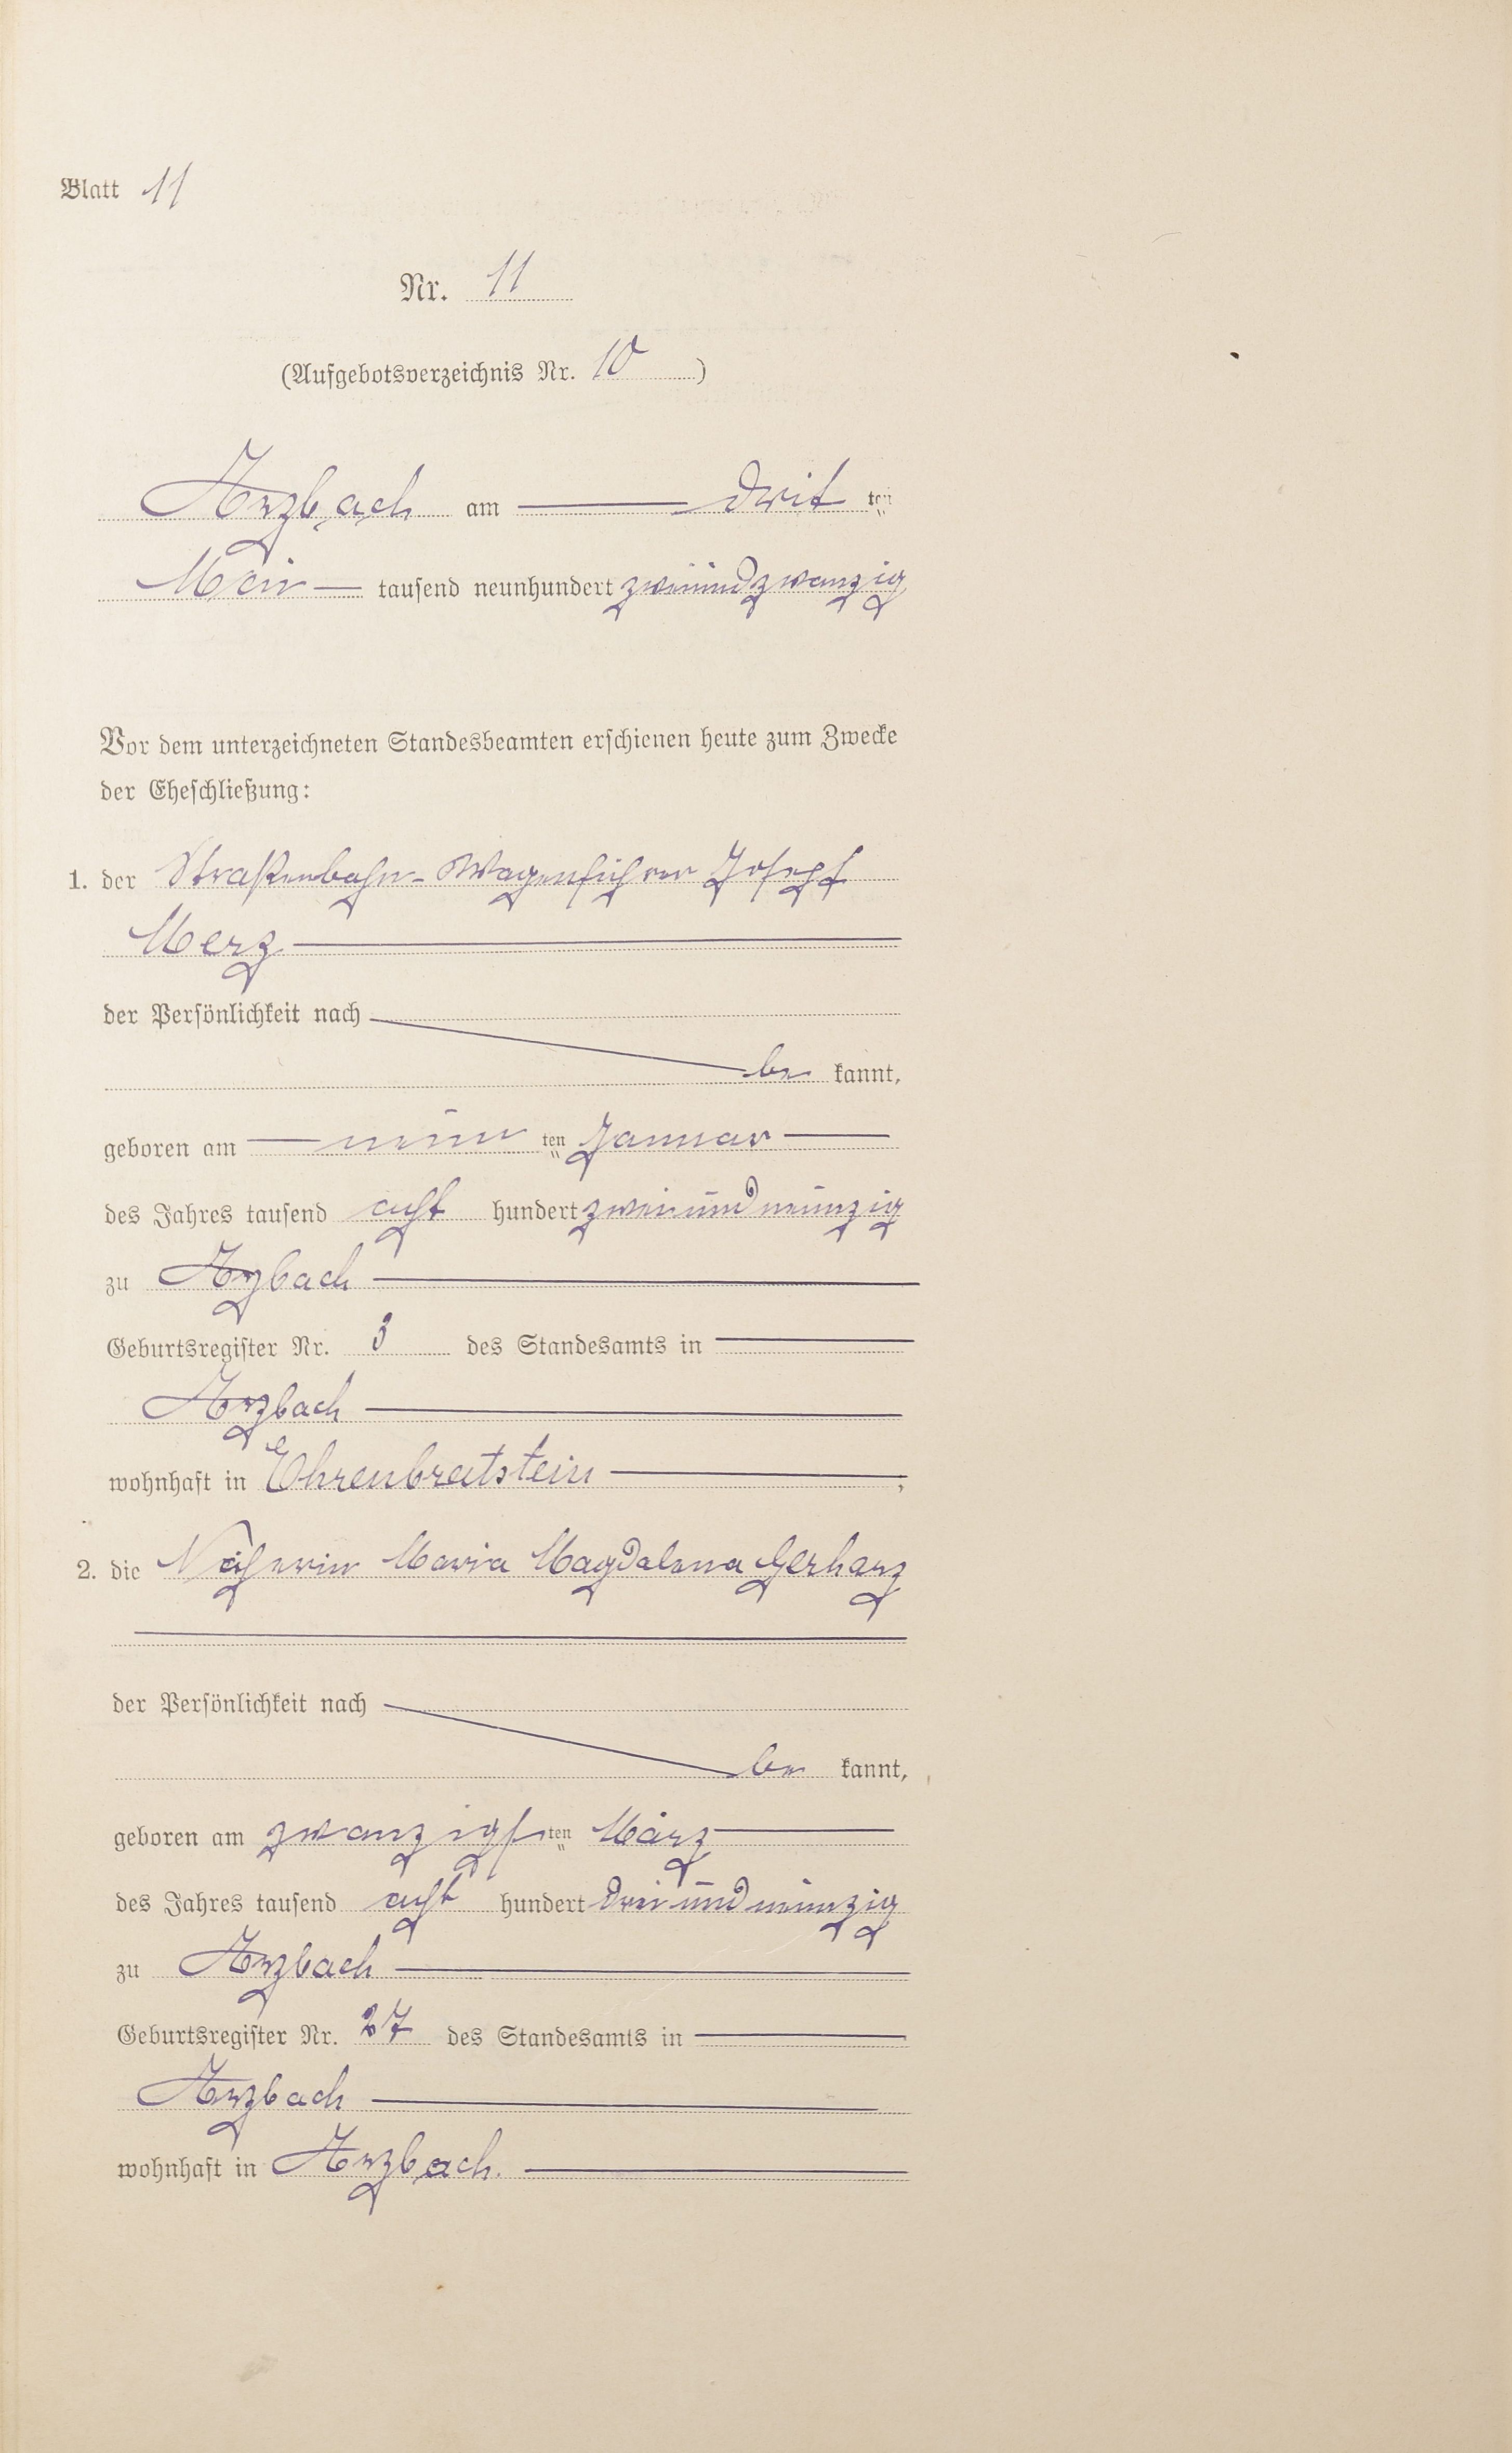 Blatt 11
Nr. 11
(Aufgebotsverzeichnis Nr. 10)
Arzbach am dritten
Mai tausend neunhundert zweiundzwanzig
Vor dem unterzeichneten Standesbeamten erschienen heute zum Zwecke
der Eheschließung:
1. der Straßenbahn-Wagenführer Joseph
Merz
der Persönlichkeit nach
be kannt,
geboren am neunten Januar
des Jahres tausend acht hundert zweiundneunzig
zu Arzbach
Geburtsregister Nr. 3 des Standesamts in
Arzbach
wohnhaft in Ehrenbreitstein;
2. die Näherin Maria Magdalena Gerharz
der Persönlichkeit nach
be kannt,
geboren am zwanzigsten März
des Jahres tausend acht hundert dreiundneunzig
zu Arzbach
Geburtsregister Nr. 27 des Standesamts in
Arzbach
wohnhaft in Arzbach.